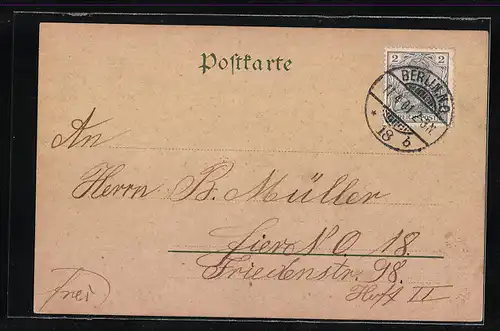 Postkarte
2 2
BERLIN N.O.
18 b
An
Herrn B. Müller
hier N O. 18.
Friedenstr. 98.
Hof II
frei